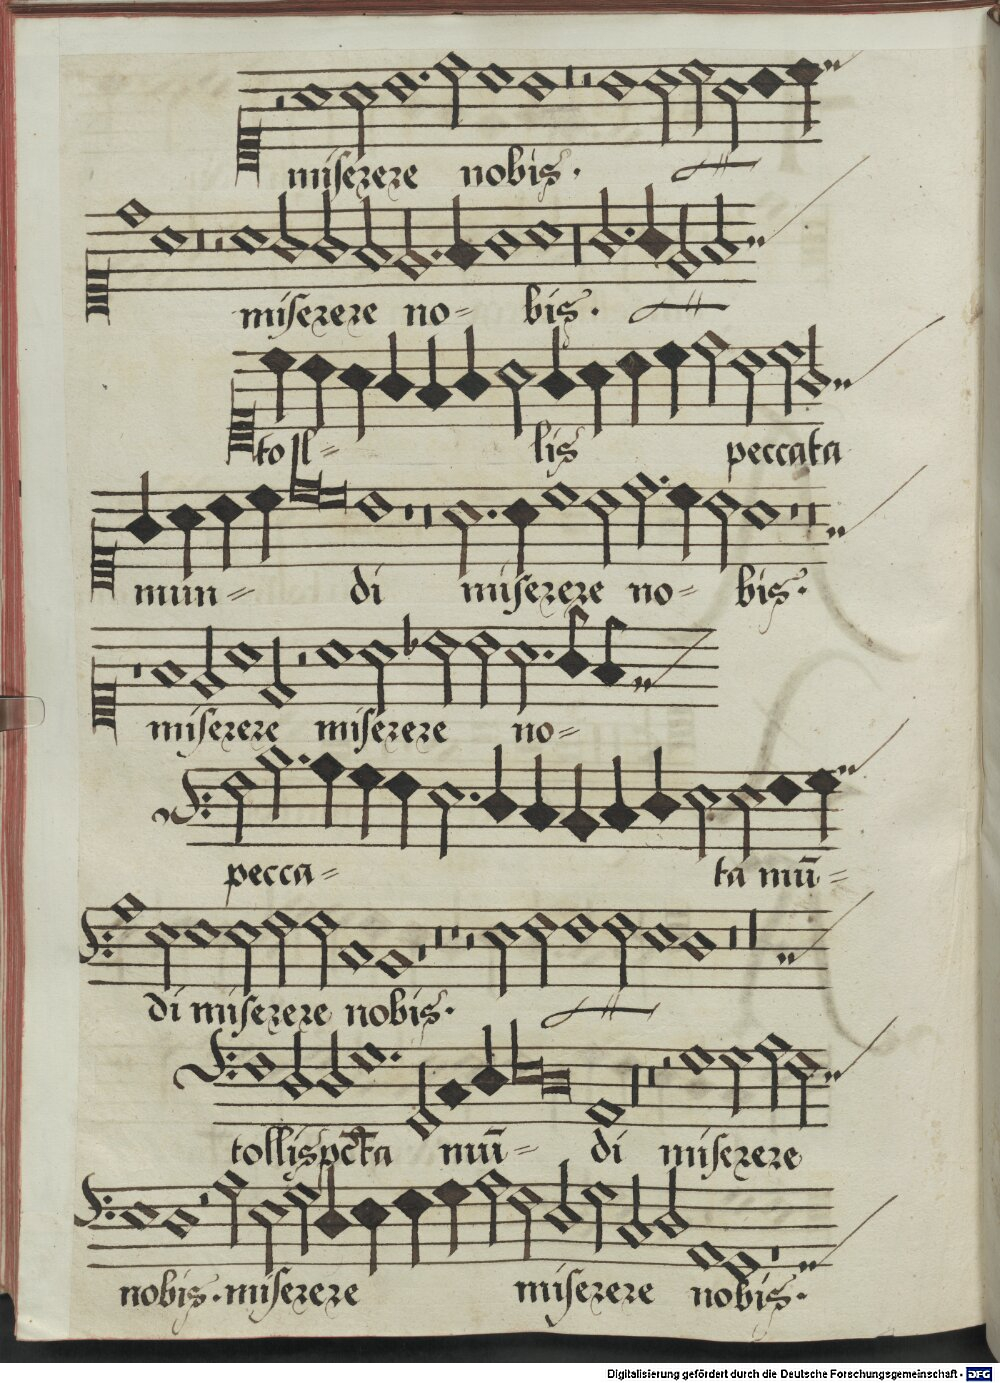 miserere nobis.
miserere no= bis.
toll= lis peccata
mun= di miserere no= bis.
miserere miserere no=
pecca= ta mū=
di miserere nobis.
tollis pc̄ta mū= di miserere
nobis. miserere miserere nobis.
Digitalisierung gefördert durch die Deutsche Forschungsgemeinschaft - DFG